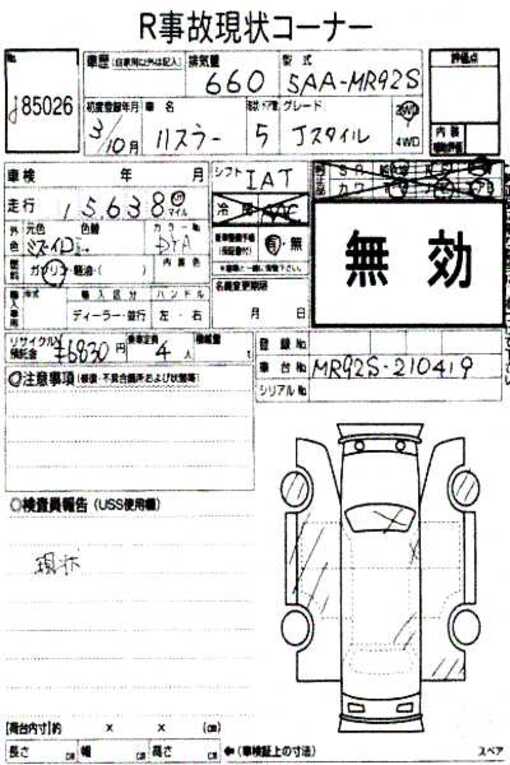 R事故現状コーナー
No.
85026
車歴 (自家用以外は記入)
排気量 660
型式 5AA-MR92S
評価点
初度登録年月 3/10月
車名 ハスラー
5
グレード Jスタイル
2WD
4WD
内装
補助評価
車検 年 月
シフト IAT
走行 15,638 マイル
冷房 AAC
無効
外色 元色 色替 カラーNo.
有・無
燃料 ガソリン・軽油・( )
内装色
名義変更期限
月 日
輸入車用 年式 輸入区分 ハンドル
ディーラー・並行 左・右
リサイクル預託金 ¥6830円
乗車定員 4人
積載量 t
登録No.
車台No. MR92S-210419
シリアルNo.
◎注意事項 (修復・不具合箇所および状態等)
◎検査員報告 (USS使用欄)
現状
[荷台内寸]約 × × (cm)
長さ cm 幅 cm 高さ cm
←(車検証上の寸法)
スペア